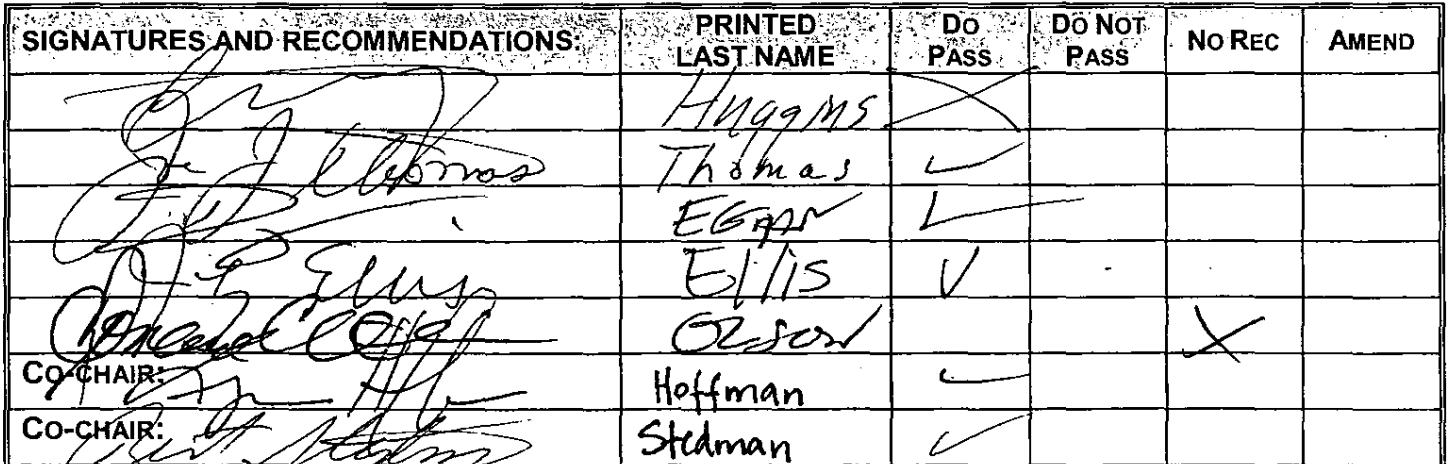 SIGNATURES AND RECOMMENDATIONS: PRINTED LAST NAME DO PASS DO NOT PASS NO REC AMEND
Huggins
Thomas Thomas
EGAN
Ellis Ellis
OLSON X
CO-CHAIR: Hoffman
CO-CHAIR: Stedman